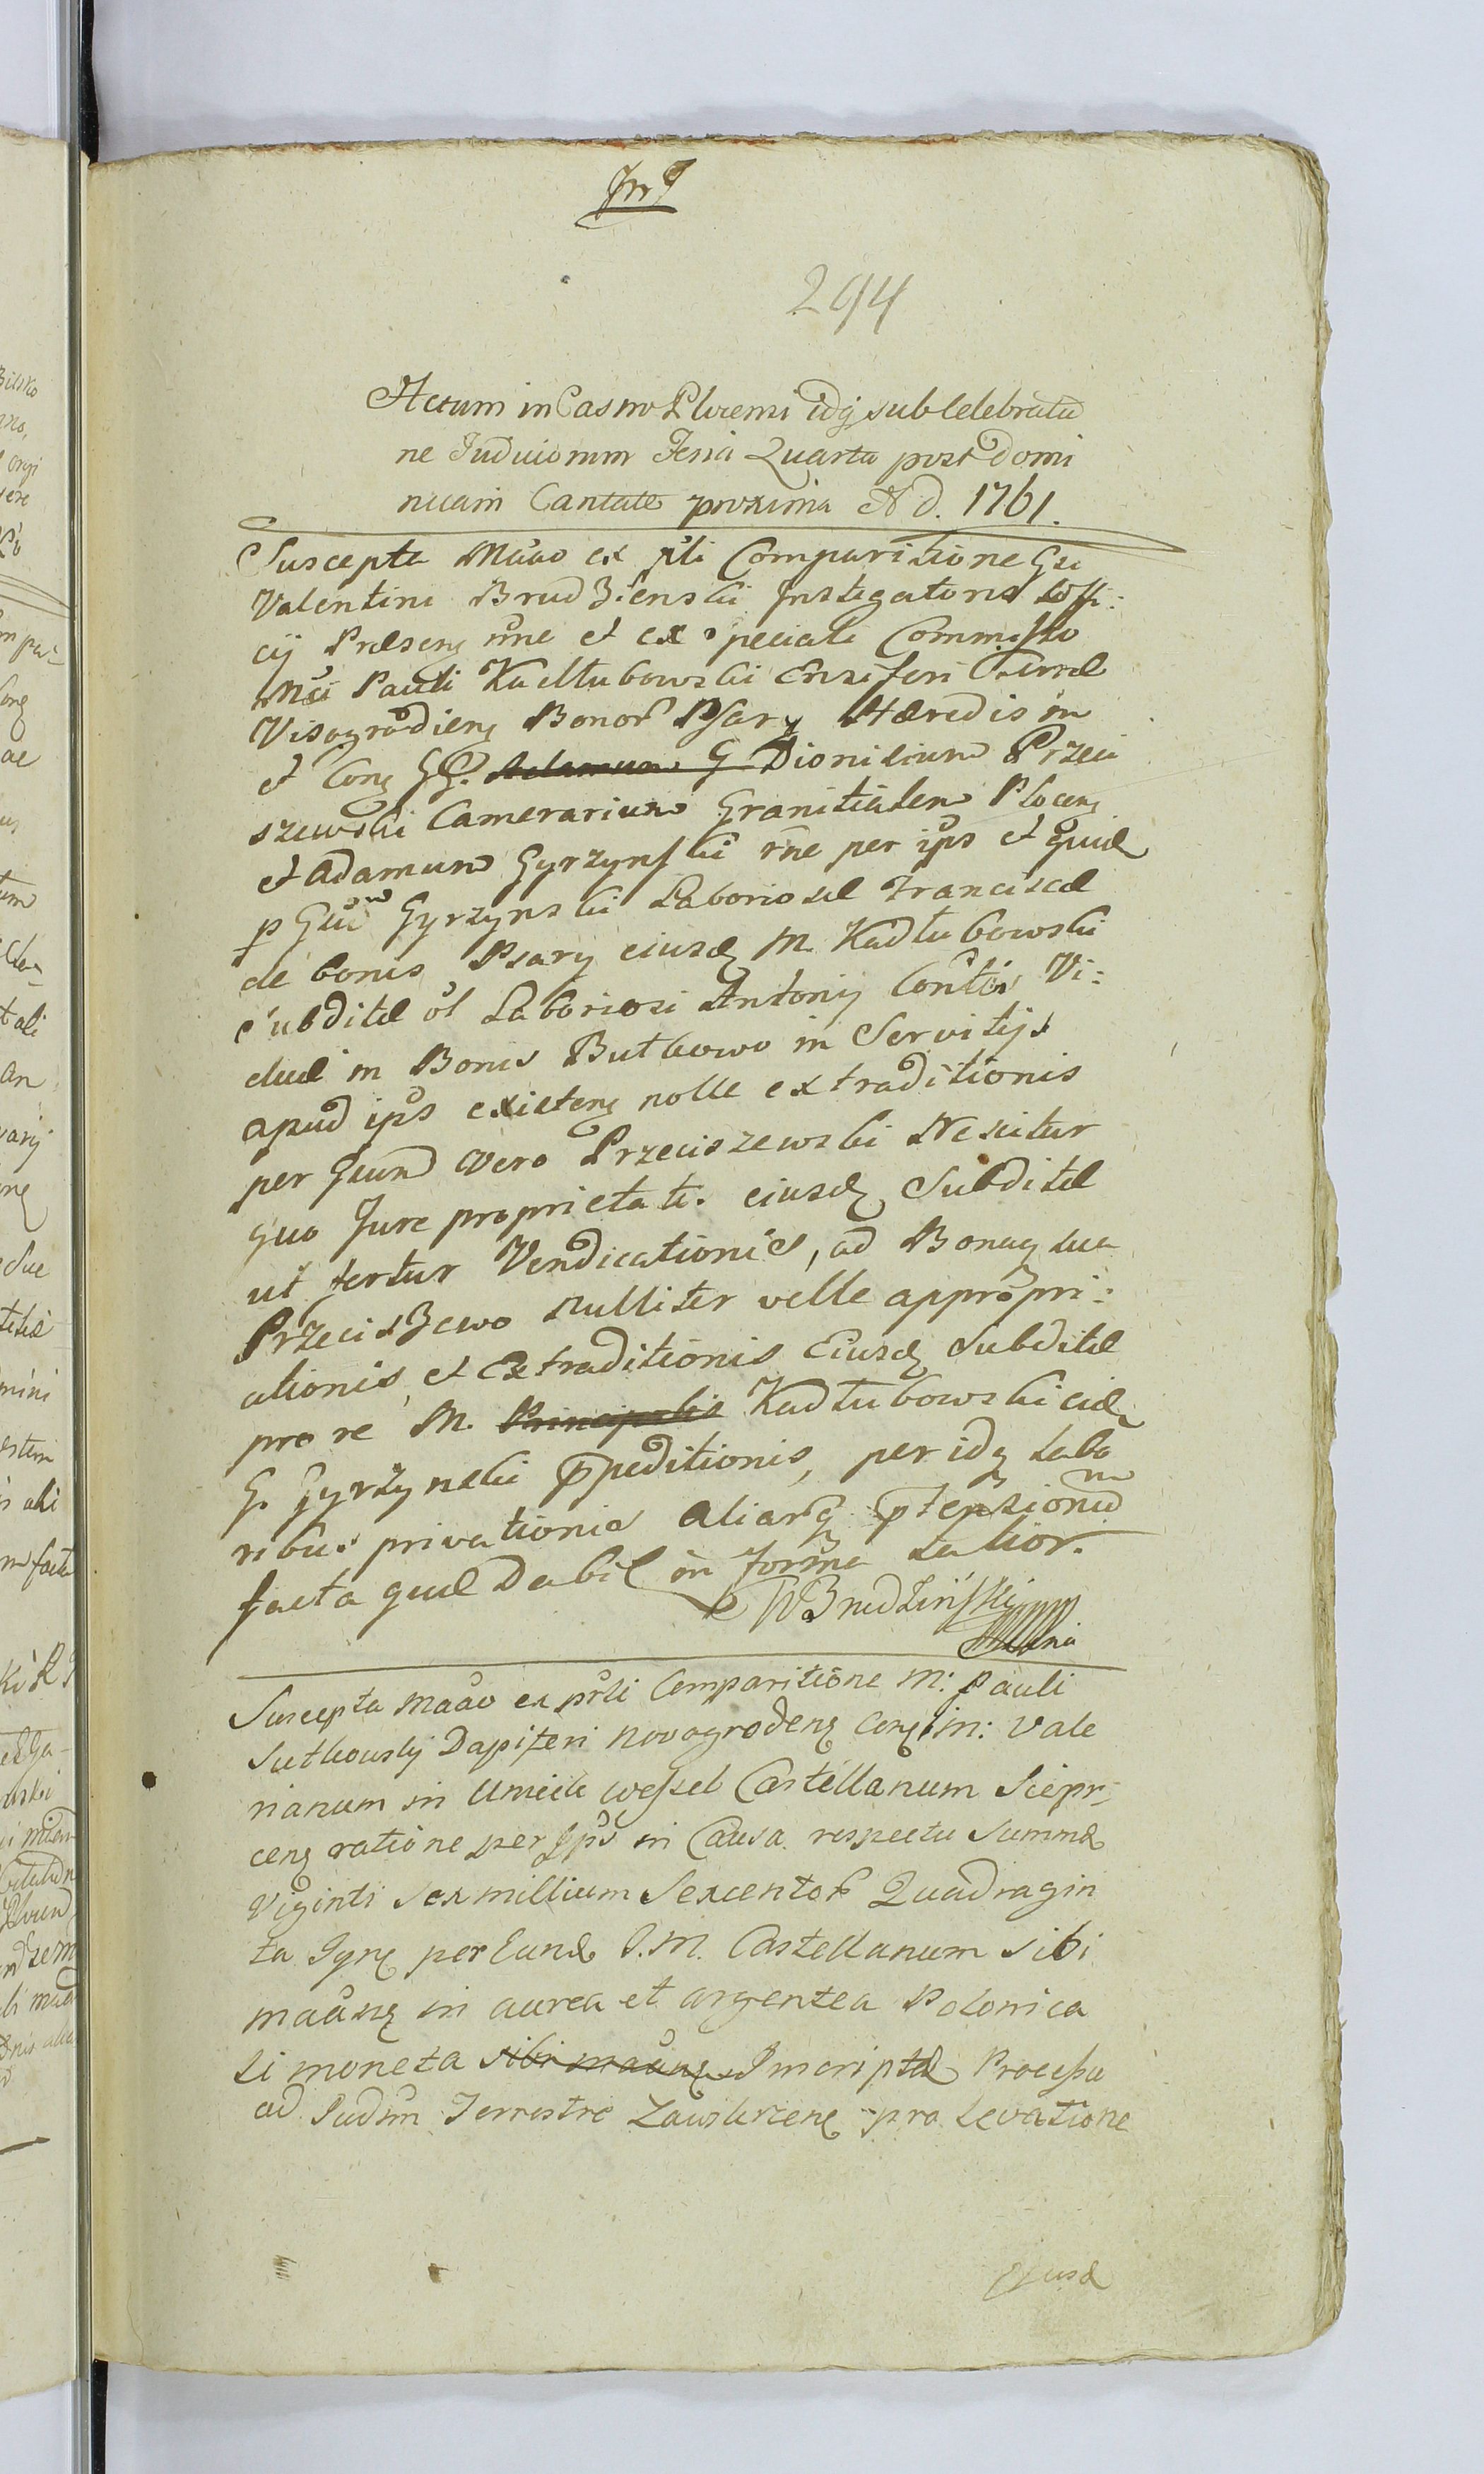 294
Actum in Castro Plocensi idq sub Celebratio
ne Judiciorum Feria Quarta post Domi
nicam Cantate proxima A d. 1761.
Suscepta Maāo ex pn̄li Comparitione Gsi
Valentini Brudzienski Instigatoris Offi:
cij Præsenq et ex speciali Commisso
Mci Pauli Kadłubowski Ensiferi Terræ
Visogrodienq Bonor Psary Hæredis in
et Conq GG. Adamum G Dionisium Przeci
szewski Camerarium Granitialem Plocenq
et Adamum Gyrzynski rn̄e per ips et quid
p Gnu Gyrzynski Laboriosæ Franciscæ
de bonis Psary eiusd M. Kadłubowski
subditæ ol Laboriosi Antonij Contis Vi:
duæ in Bonis Butkowo in Servitijs
apud ips existenq nolle extraditionis
per Gnum vero Przeciszewski Nescitur
quo Jure proprietatis eiusd Subditæ
ut fertur Vendicationis, ad Bona sua
Przeciszewo Nulliter velle appropri:
ationis, et Extraditionis Eiusd Subditæ
pro re M. Principalis Kadłubowski eid
G. Gyrzynski præpeditionis, per idq Labo
ribus privationis aliarq prætensionum
facta quæ Dabil in forma Latior.
W Brudziński
Suscepta Maāo ex pn̄li Comparitione M: Pauli
Sutkowskj Dapiferi Novogrodenq Conq im: Vale
rianum in Umieck Wessel Castellanum Siepr:
cenq ratione per Jps in Causa respectu Summæ
Viginti sex millium Sexcentor Quadragin
ta Tynf per Eund J. M. Castellanum sibi
maānq in aurea et argentea Polonica
li moneta sibi maānq Inscriptæ Processu
ad Judm Terrestre Zawskrzenq pro levatione
ejusd